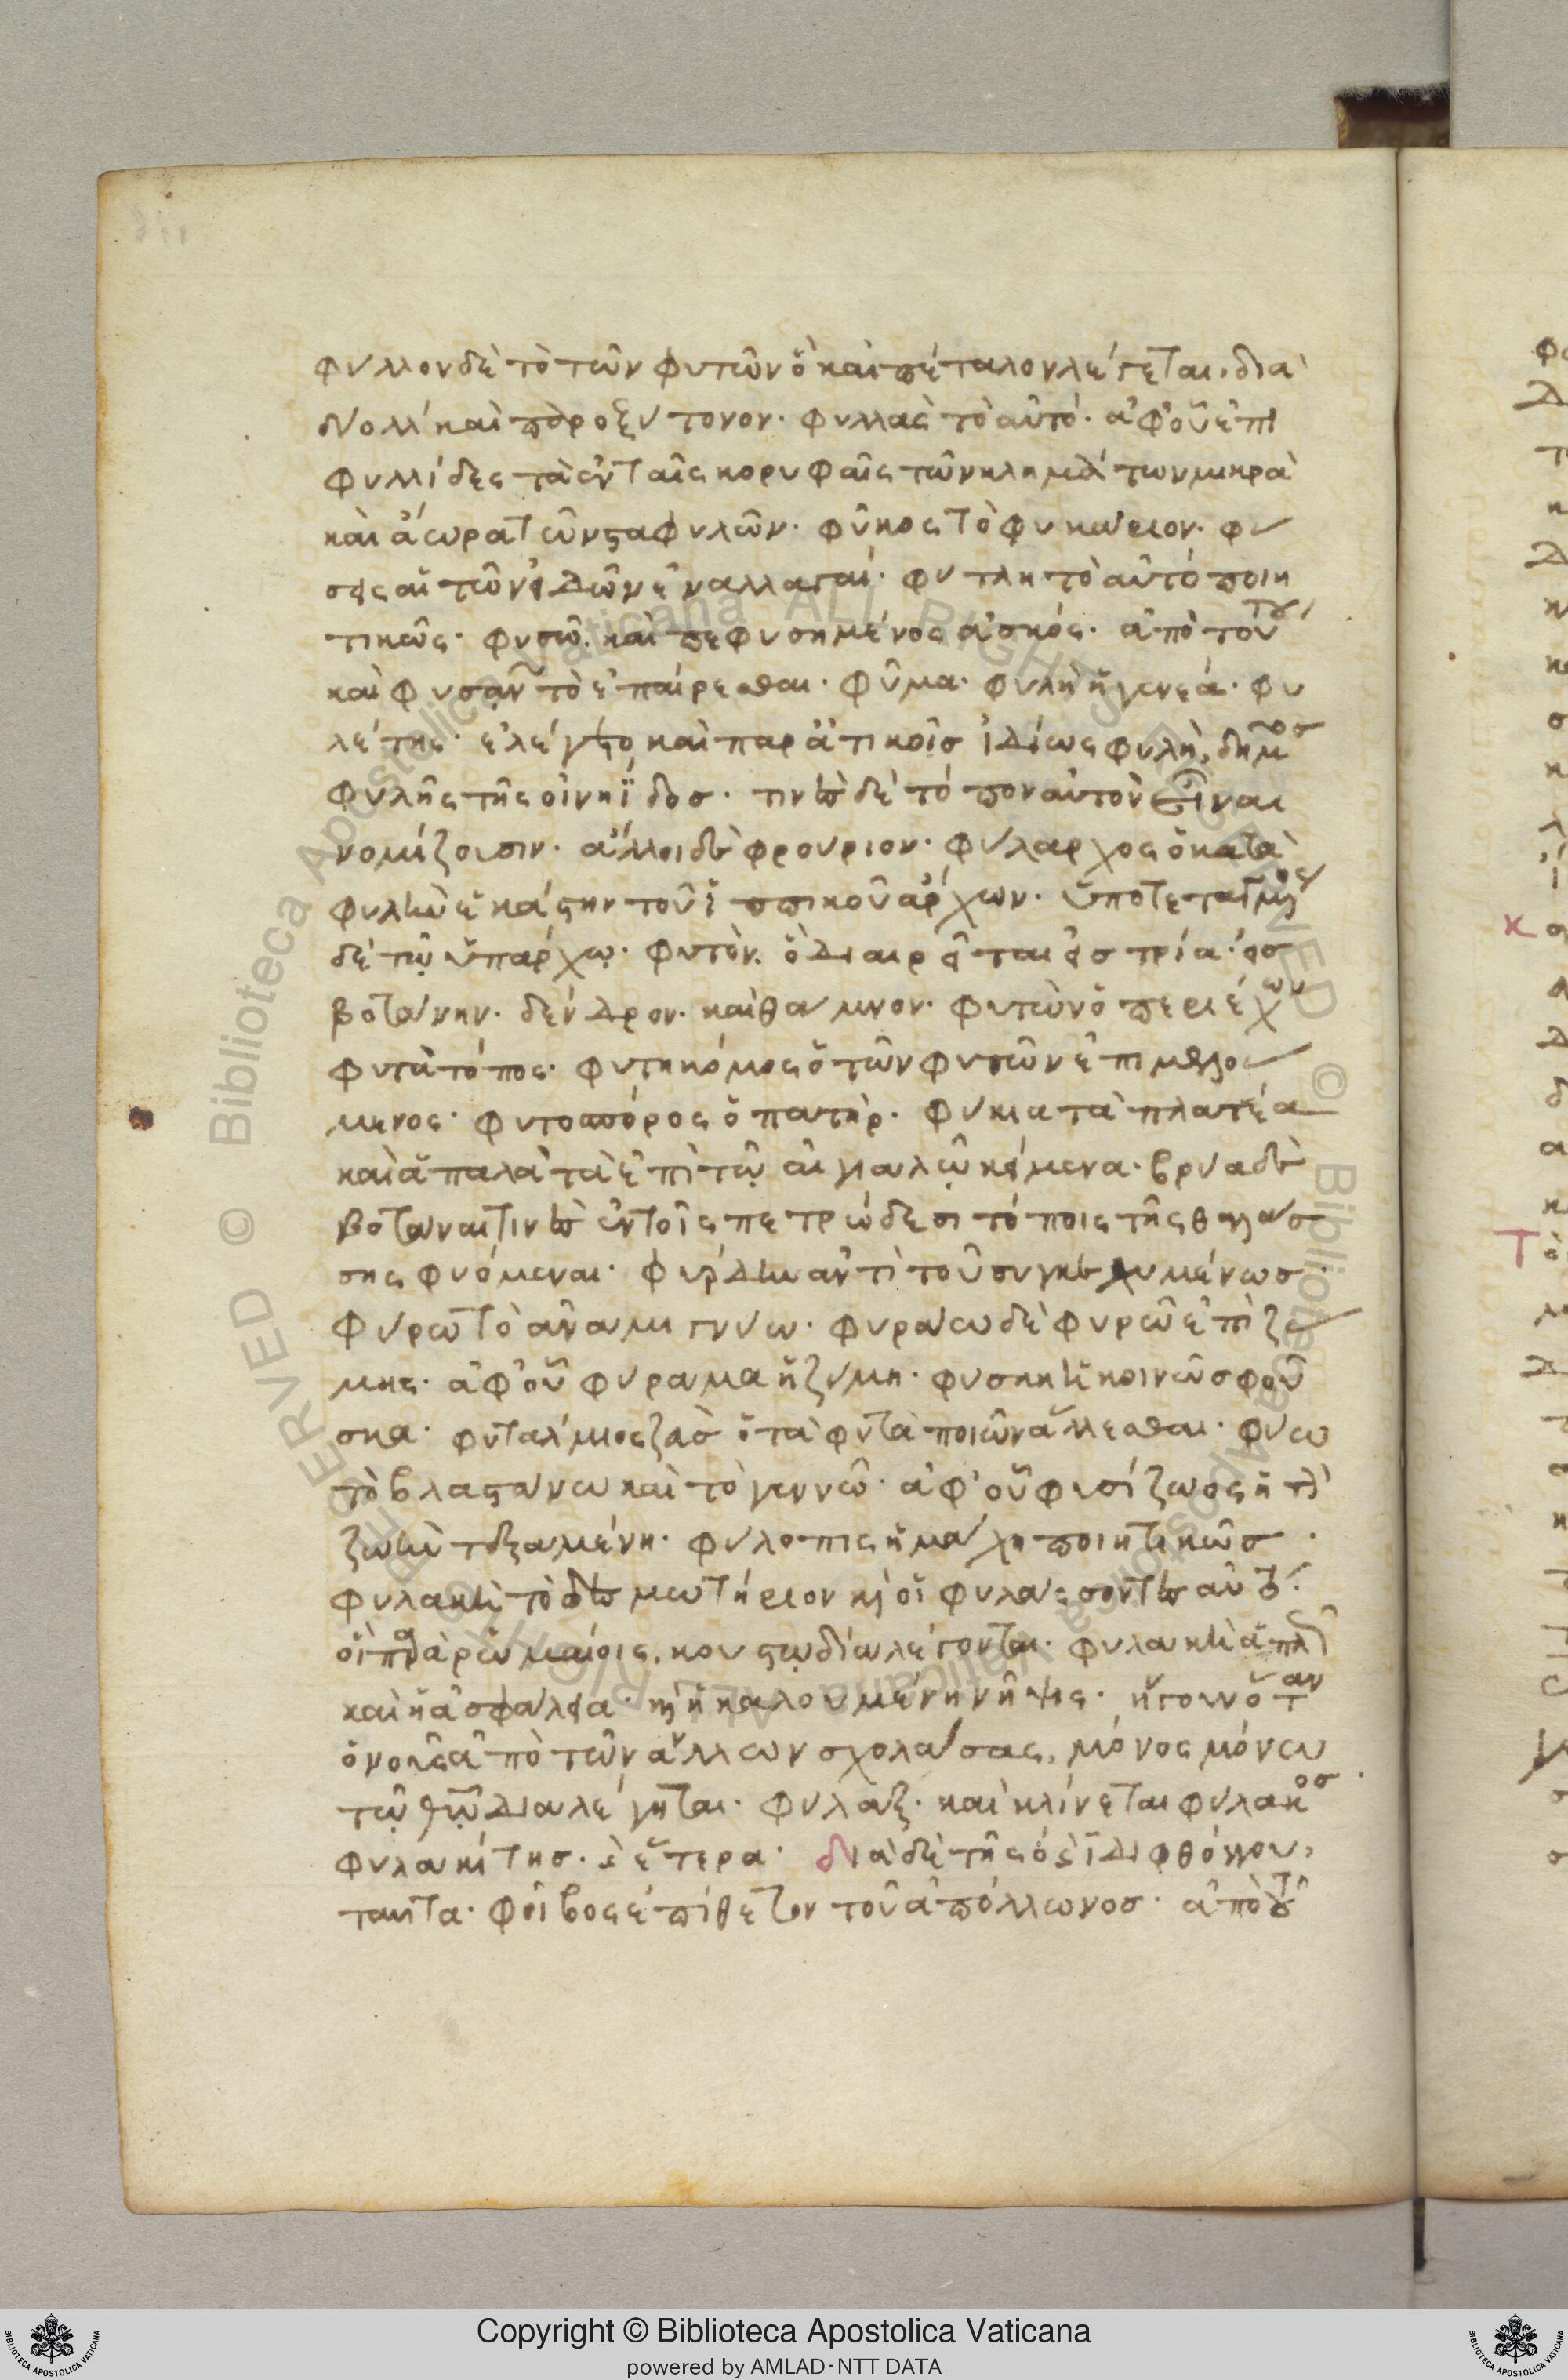 φύλλον δὲ τὸ τῶν φυτῶν ὃ καὶ πέταλον λέγεται, διὰ
δύο λλ καὶ παροξύτονον· φυλλὰς τὸ αὐτό· ἀφ' οὗ ἐπι
φυλλίδες τὰ ἐν ταῖς κορυφαῖς τῶν κλημάτων μικρὰ
καὶ ἄωρα τῶν σταφυλῶν· φῦκος τὸ φυκάριον· φύ
σεις αἱ τῶν εἰδῶν ἐναλλαγαί· φύτλη τὸ αὐτὸ ποιη
τικῶς· φυσῶ· καὶ πεφυσημένος ἀσκός· ἀπὸ τούτου
καὶ φυσᾶν τὸ ἐπαίρεσθαι· φῦμα· φυλὴ ἡ γενεά· φυ
λέτης· ἐλέγετο καὶ παρ' ἀττικοῖς ἰδίως φυλὴ, δῆμος
φυλῆς τῆς οἰνηΐδος· τινὲς δὲ τόπον αὐτὸν εἶναι
νομίζουσιν· ἄλλοι δὲ φρούριον· φύλαρχος ὁ κατὰ
φυλὴν ἑκάστην τοῦ ἱππικοῦ ἄρχων· ὑποτεταγμένος
δὲ τῷ ὑπάρχῳ· φυτὸν· ὃ διαιρεῖται εἰς τρία· εἰς
βοτάνην· δένδρον· καὶ θάμνον· φυτὼν ὁ περιέχων
φυτὰ τόπος· φυτηκόμος ὁ τῶν φυτῶν ἐπιμελού
μενος· φυτοσπόρος ὁ πατήρ· φυκία τὰ πλατέα
καὶ ἁπαλὰ τὰ ἐπὶ τῷ αἰγιαλῷ κείμενα· βρύα δὲ
βοτάναι τινὲς ἐν τοῖς πετρώδεσι τόποις τῆς θαλάσ
σης φυόμεναι· φύρδην ἀντὶ τοῦ συγκεχυμένως·
φύρω τὸ ἀναμιγνύω· φυράω δὲ φυρῶ ἐπὶ ζύ
μης· ἀφ' οὗ φύραμα ἡ ζύμη· φυσκὴ ἡ κοινῶς φοῦ
σκα· φυτάλμιος ζεὺς ὁ τὰ φυτὰ ποιῶν ἅλλεσθαι· φύω
τὸ βλαστάνω καὶ τὸ γεννῶ· ἀφ' οὗ φυσίζωος ἡ τὴν
ζωὴν τεξαμένη· φύλοπις ἡ μάχη ποιητικῶς·
φυλακὴ τὸ δεσμωτήριον καὶ οἱ φυλάσσοντες αὐτό·
οἳ παρὰ ῥωμαίοις, κουστωδία λέγονται· φυλακὴ ἁπλῶς
καὶ ἡ ἀσφάλεια· καὶ ἡ καλουμένη νῆψις· ἤγουν ὅταν
ὁ νοῦς ἀπὸ τῶν ἄλλων σχολάσας, μόνος μόνῳ
τῷ θεῷ διαλέγηται· φύλαξ· καὶ κλίνεται φύλακος·
φυλακίτης· καὶ ἕτερα· διὰ δὲ τῆς οι διφθόγγου,
ταῦτα· φοῖβος ἐπίθετον τοῦ ἀπόλλωνος· ἀπὸ τοῦ